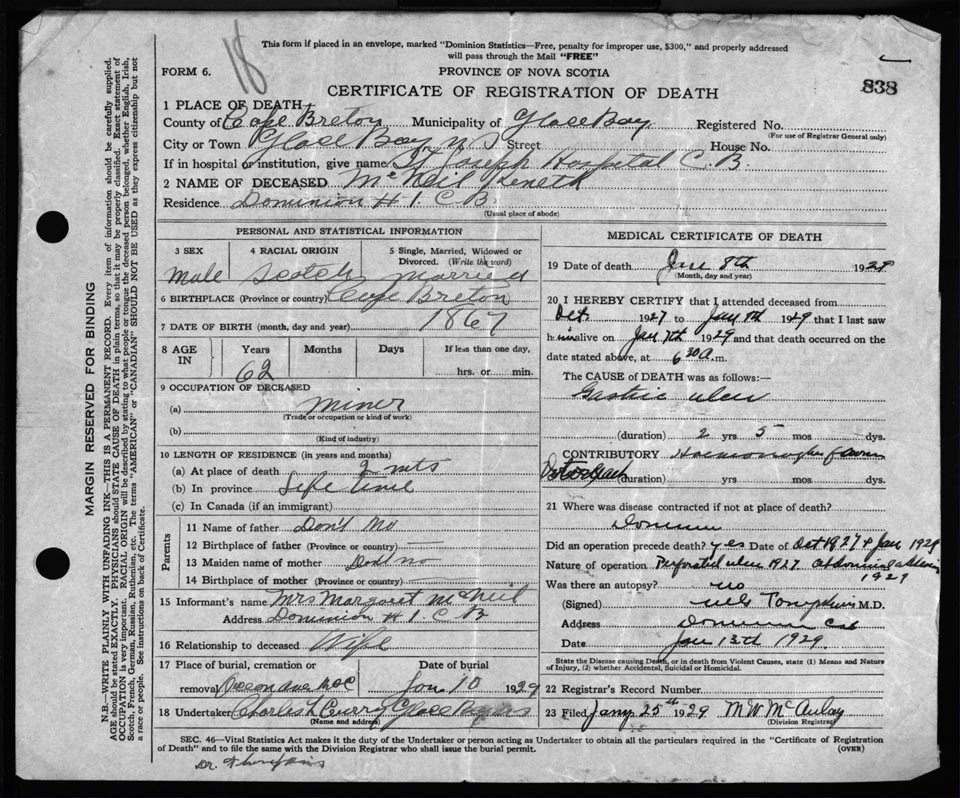 18
This form if placed in an envelope, marked "Dominion Statistics—Free, penalty for improper use, $300," and properly addressed
will pass through the Mail "FREE"
FORM 6.
PROVINCE OF NOVA SCOTIA
CERTIFICATE OF REGISTRATION OF DEATH
838
1 PLACE OF DEATH
County of Cape Breton Municipality of Glace Bay Registered No.
(For use of Registrar General only)
City or Town Glace Bay N S Street House No.
If in hospital or institution, give name St Joseph Hospital C. B.
2 NAME OF DECEASED McNeil Keneth
Residence Dominion # 1 C. B.
(Usual place of abode)
PERSONAL AND STATISTICAL INFORMATION
3 SEX 4 RACIAL ORIGIN 5 Single, Married, Widowed or
Divorced. (Write the word)
Male Scotch married
6 BIRTHPLACE (Province or country) Cape Breton
7 DATE OF BIRTH (month, day and year) 1867
8 AGE IN Years Months Days If less than one day,
62 hrs. or min.
9 OCCUPATION OF DECEASED
(a) miner
(Trade or occupation or kind of work)
(b)
(Kind of industry)
10 LENGTH OF RESIDENCE (in years and months)
(a) At place of death 2 mts
(b) In province Life time
(c) In Canada (if an immigrant)
Parents
11 Name of father Don't No
12 Birthplace of father (Province or country)
13 Maiden name of mother Dont no
14 Birthplace of mother (Province or country)
15 Informant's name Mrs Margaret McNeil
Address Dominion # 1 C B
16 Relationship to deceased Wife
17 Place of burial, cremation or Date of burial
removal Jan 10 1929
18 Undertaker Charles L Curry Glace Bay NS
(Name and address)
MEDICAL CERTIFICATE OF DEATH
19 Date of death Jan 8th 1929
(Month, day and year)
20 I HEREBY CERTIFY that I attended deceased from
Oct. 1927 to Jan 8th 1929 that I last saw
him alive on Jan 7th 1929 and that death occurred on the
date stated above, at 6 30 a.m.
The CAUSE of DEATH was as follows:—
Gastric ulcer
(duration) 2 yrs 5 mos dys.
CONTRIBUTORY
(duration) yrs. mos dys.
21 Where was disease contracted if not at place of death?
Dominion
Did an operation precede death? yes Date of Oct 1927 & Jan 1929
Nature of operation Perforated ulcer 1927
1929
Was there an autopsy? no
(Signed) Tompkins M.D.
Address Dominion C.B
Date Jan 13th 1929.
State the Disease causing Death, or in death from Violent Causes, state (1) Means and Nature
of Injury, (2) whether Accidental, Suicidal or Homicidal.
22 Registrar's Record Number
23 Filed Jany 25th 1929 M W McAulay
(Division Registrar)
SEC. 46—Vital Statistics Act makes it the duty of the Undertaker or person acting as Undertaker to obtain all the particulars required in the "Certificate of Registration
of Death" and to file the same with the Division Registrar who shall issue the burial permit.
(OVER)
Dr. Thompkins
MARGIN RESERVED FOR BINDING
N.B.—WRITE PLAINLY WITH UNFADING INK—THIS IS A PERMANENT RECORD. Every item of information should be carefully supplied.
AGE should be stated EXACTLY. PHYSICIANS should STATE CAUSE OF DEATH in plain terms, so that it may be properly classified. Exact statement of
OCCUPATION is very important. RACIAL ORIGIN will be described by stating to what people or tongue the deceased person belonged, whether English, Irish,
Scotch, French, German, Russian, Ruthenian, etc. The terms "AMERICAN" or "CANADIAN" SHOULD NOT BE USED as they express citizenship but not
a race or people. See instructions on back of Certificate.